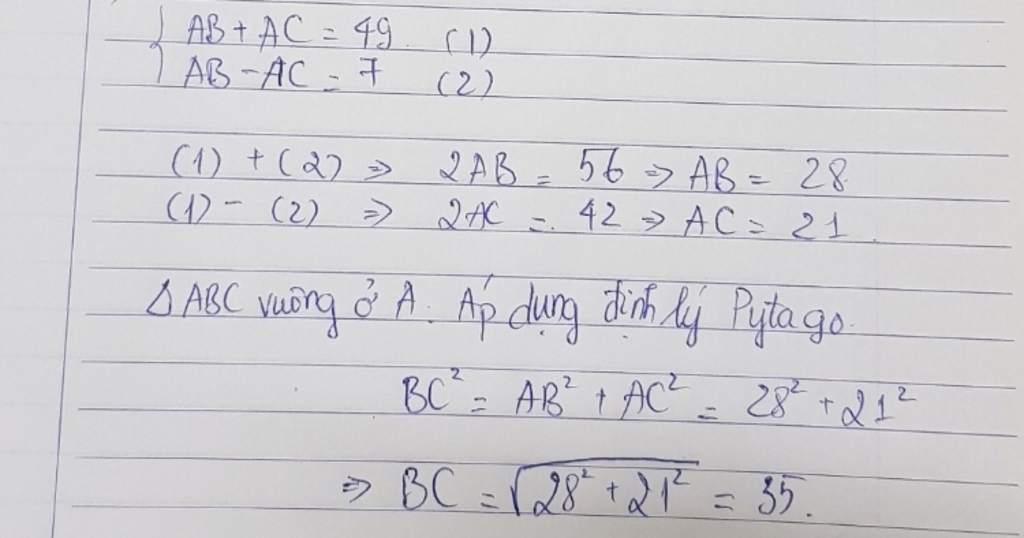 { AB + AC = 49. (1)
AB - AC = 7 (2)
(1) + (2) => 2AB = 56 => AB = 28
(1) - (2) => 2AC = 42 => AC = 21.
Δ ABC vuông ở A. Áp dụng định lý Pytago.
BC² = AB² + AC² = 28² + 21²
=> BC = √(28² + 21²) = 35.